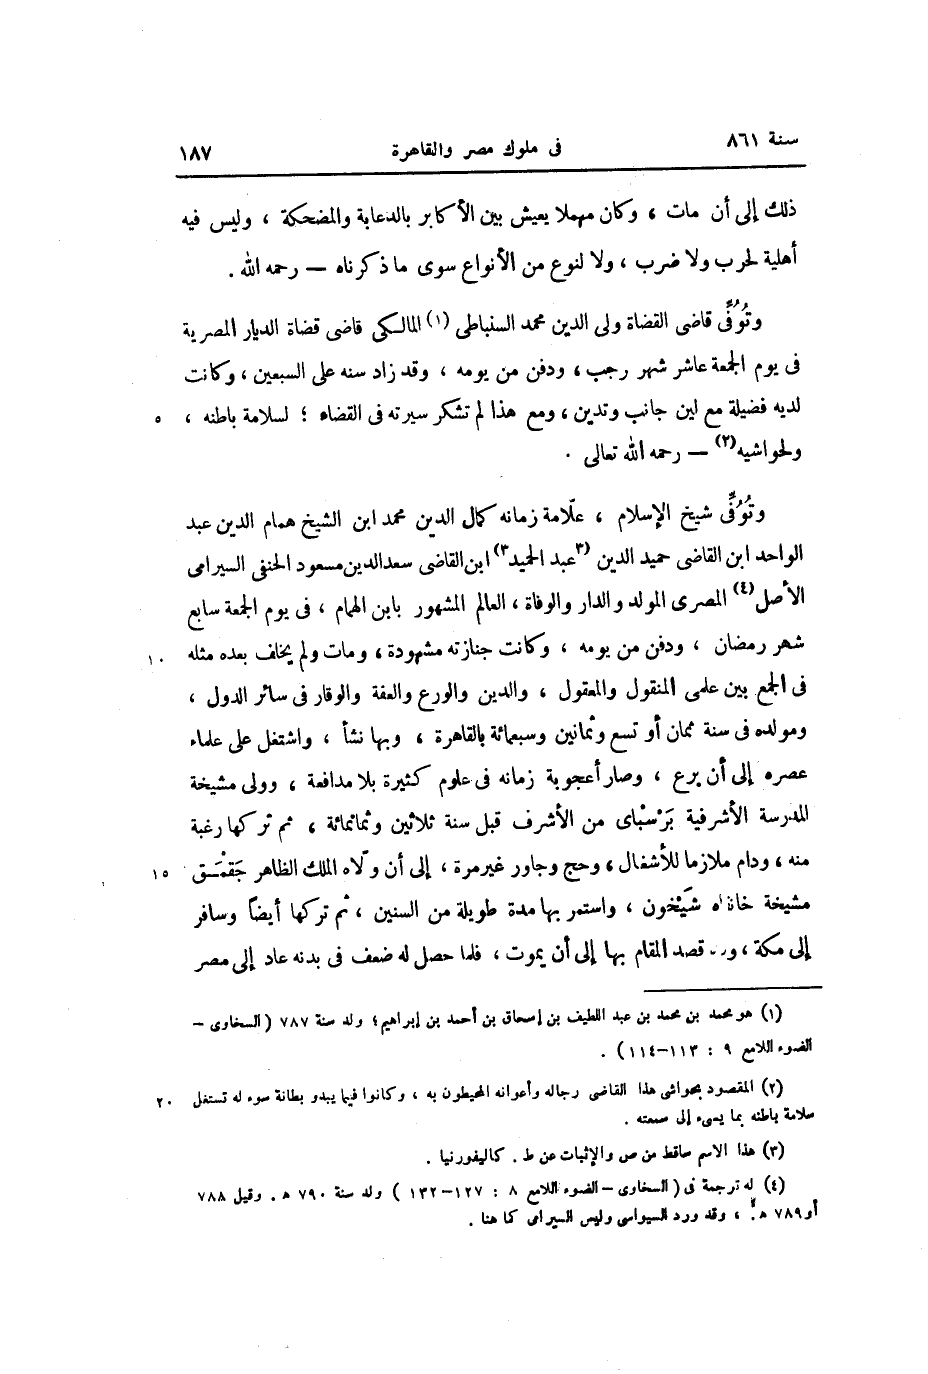 سنة ٨٦١ فى ملوك مصر والقاهرة ١٨٧
ذلك إلى أن مات ، وكان مهملا يعيش بين الأكابر بالدعابة والمضحكة ، وليس فيه
أهلية لحرب ولا ضرب ، ولا لنوع من الأنواع سوى ما ذكرناه — رحمه الله .
وتُوُفِّى قاضى القضاة ولى الدين محمد السنباطى (١) المالكى قاضى قضاة الديار المصرية
فى يوم الجمعة عاشر شهر رجب ، ودفن من يومه ، وقد زاد سنه على السبعين ، وكانت
لديه فضيلة مع لين جانب وتدين ، ومع هذا لم تشكر سيرته فى القضاء ؛ لسلامة باطنه ، ٥
ولحواشيه (٢) — رحمه الله تعالى .
وتُوُفِّى شيخ الإسلام ، علّامة زمانه كمال الدين محمد ابن الشيخ همام الدين عبد
الواحد ابن القاضى حميد الدين (٣عبد الحميد٣) ابن القاضى سعد الدين مسعود الحنفى السيرامى
الأصل (٤) المصرى المولد والدار والوفاة ، العالم المشهور بابن الهمام ، فى يوم الجمعة سابع
شهر رمضان ، ودفن من يومه ، وكانت جنازته مشهودة ، ومات ولم يخلف بعده مثله ١٠
فى الجمع بين علمى المنقول والمعقول ، والدين والورع والعفة والوقار فى سائر الدول ،
ومولده فى سنة ثمان أو تسع وثمانين وسبعمائة بالقاهرة ، وبها نشأ ، واشتغل على علماء
عصره إلى أن برع ، وصار أعجوبة زمانه فى علوم كثيرة بلا مدافعة ، وولى مشيخة
المدرسة الأشرفية بَرْسْبَاى من الأشرف قبل سنة ثلاثين وثمانمائة ، ثم تركها رغبة
منه ، ودام ملازما للأشغال ، وحج وجاور غير مرة ، إلى أن ولّاه الملك الظاهر جَقْمَق ١٥
مشيخة خانقاه شَيْخُون ، واستمر بها مدة طويلة من السنين ، ثم تركها أيضاً وسافر
إلى مكة ، وقد قصد المقام بها إلى أن يموت ، فلما حصل له ضعف فى بدنه عاد إلى مصر
(١) هو محمد بن محمد بن عبد اللطيف بن إسحاق بن أحمد بن إبراهيم ؛ ولد سنة ٧٨٧ (السخاوى –
الضوء اللامع ٩ : ١١٣–١١٤) .
(٢) المقصود بحواشى هذا القاضى رجاله وأعوانه المحيطون به ، وكانوا فيما يبدو بطانة سوء له تستغل ٢٠
سلامة باطنه بما يسىء إلى سمعته .
(٣) هذا الاسم ساقط من ص والإثبات عن ط . كاليفورنيا .
(٤) له ترجمة فى (السخاوى – الضوء اللامع ٨ : ١٢٧–١٣٢ ) ولد سنة ٧٩٠ هـ . وقيل ٧٨٨
أو ٧٨٩ هـ . ، وقد ورد السيواسى وليس السيرامى كما هنا .